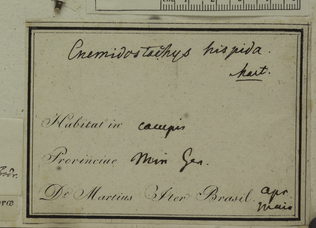 Cnemidostachys hispida.
Mart.
Habitat in campis
Provinciae Min Ger.
Dr Martius Iter Brasil. apr
maio